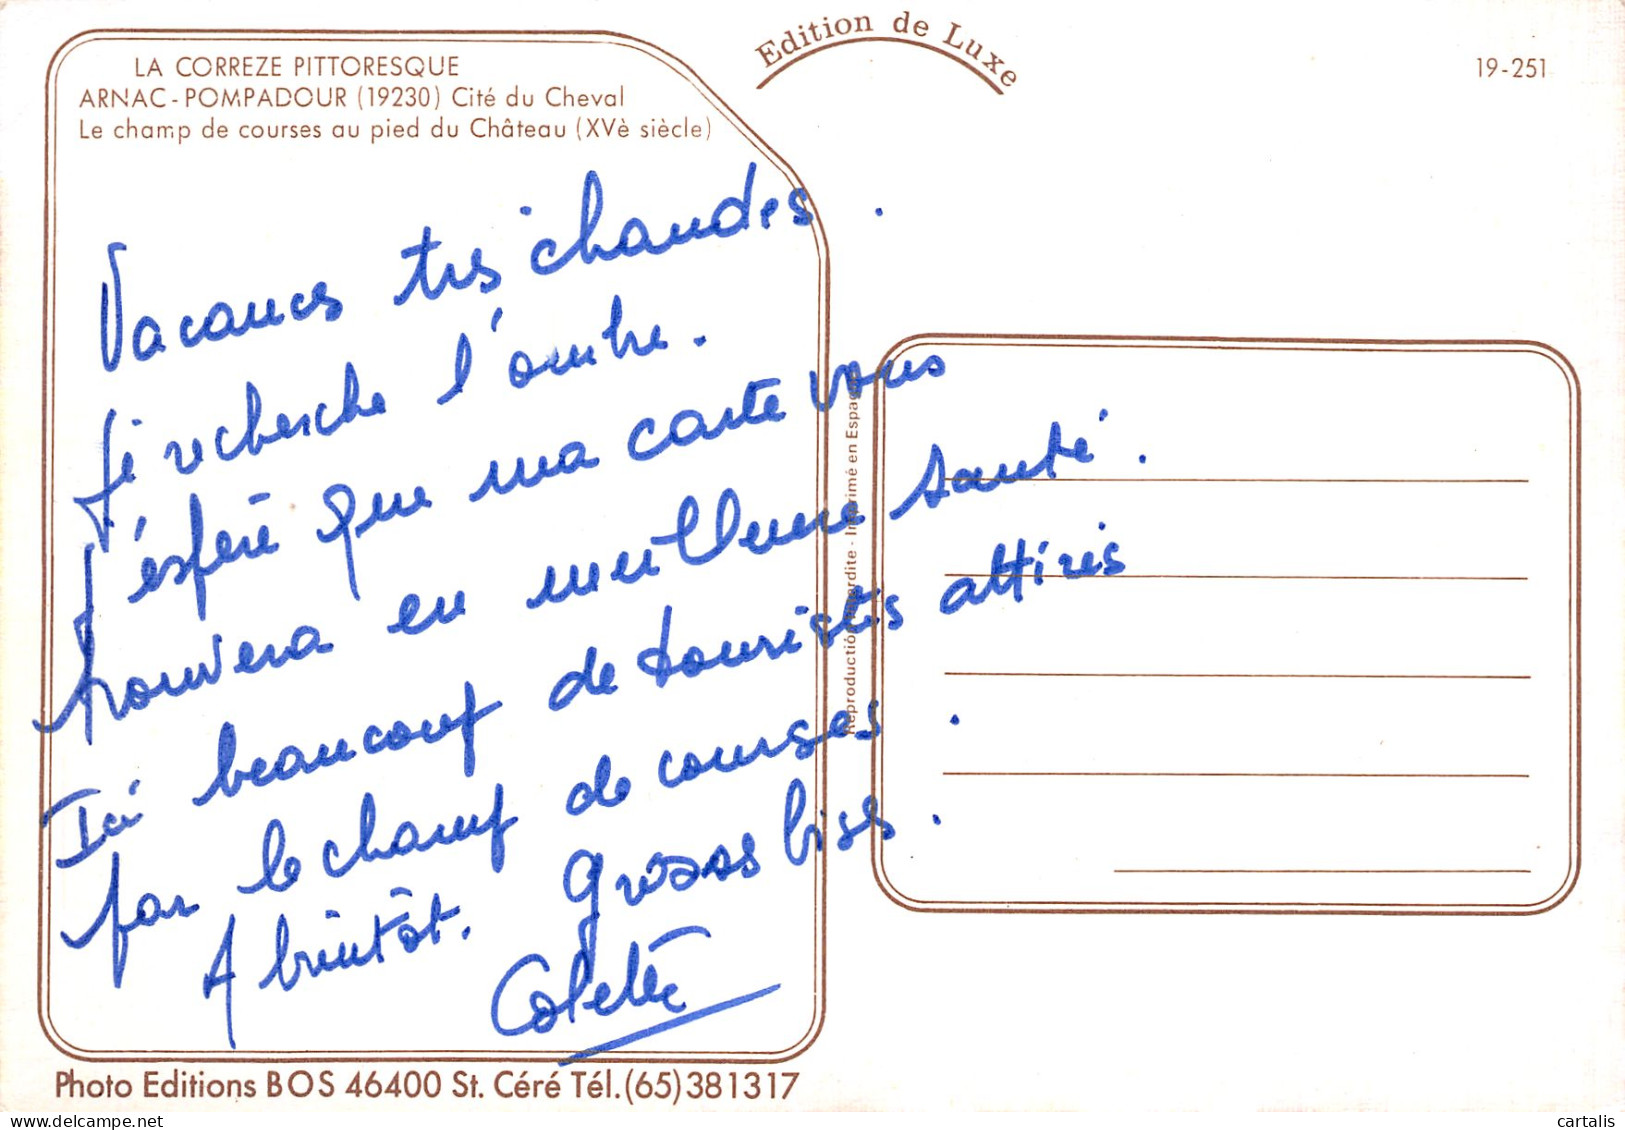 Edition de Luxe
19-251
LA CORREZE PITTORESQUE
ARNAC-POMPADOUR (19230) Cité du Cheval
Le champ de courses au pied du Château (XVè siècle)
Vacances très chaudes.
Je recherche l'ombre.
J'espère que ma carte vous
trouvera en meilleure santé.
Ici beaucoup de touristes attirés
par le champ de courses.
A bientôt. Grosses bises.
Colette
Reproduction interdite - Imprimé en Espagne
Photo Editions BOS 46400 St. Céré Tél.(65)381317
cartalis